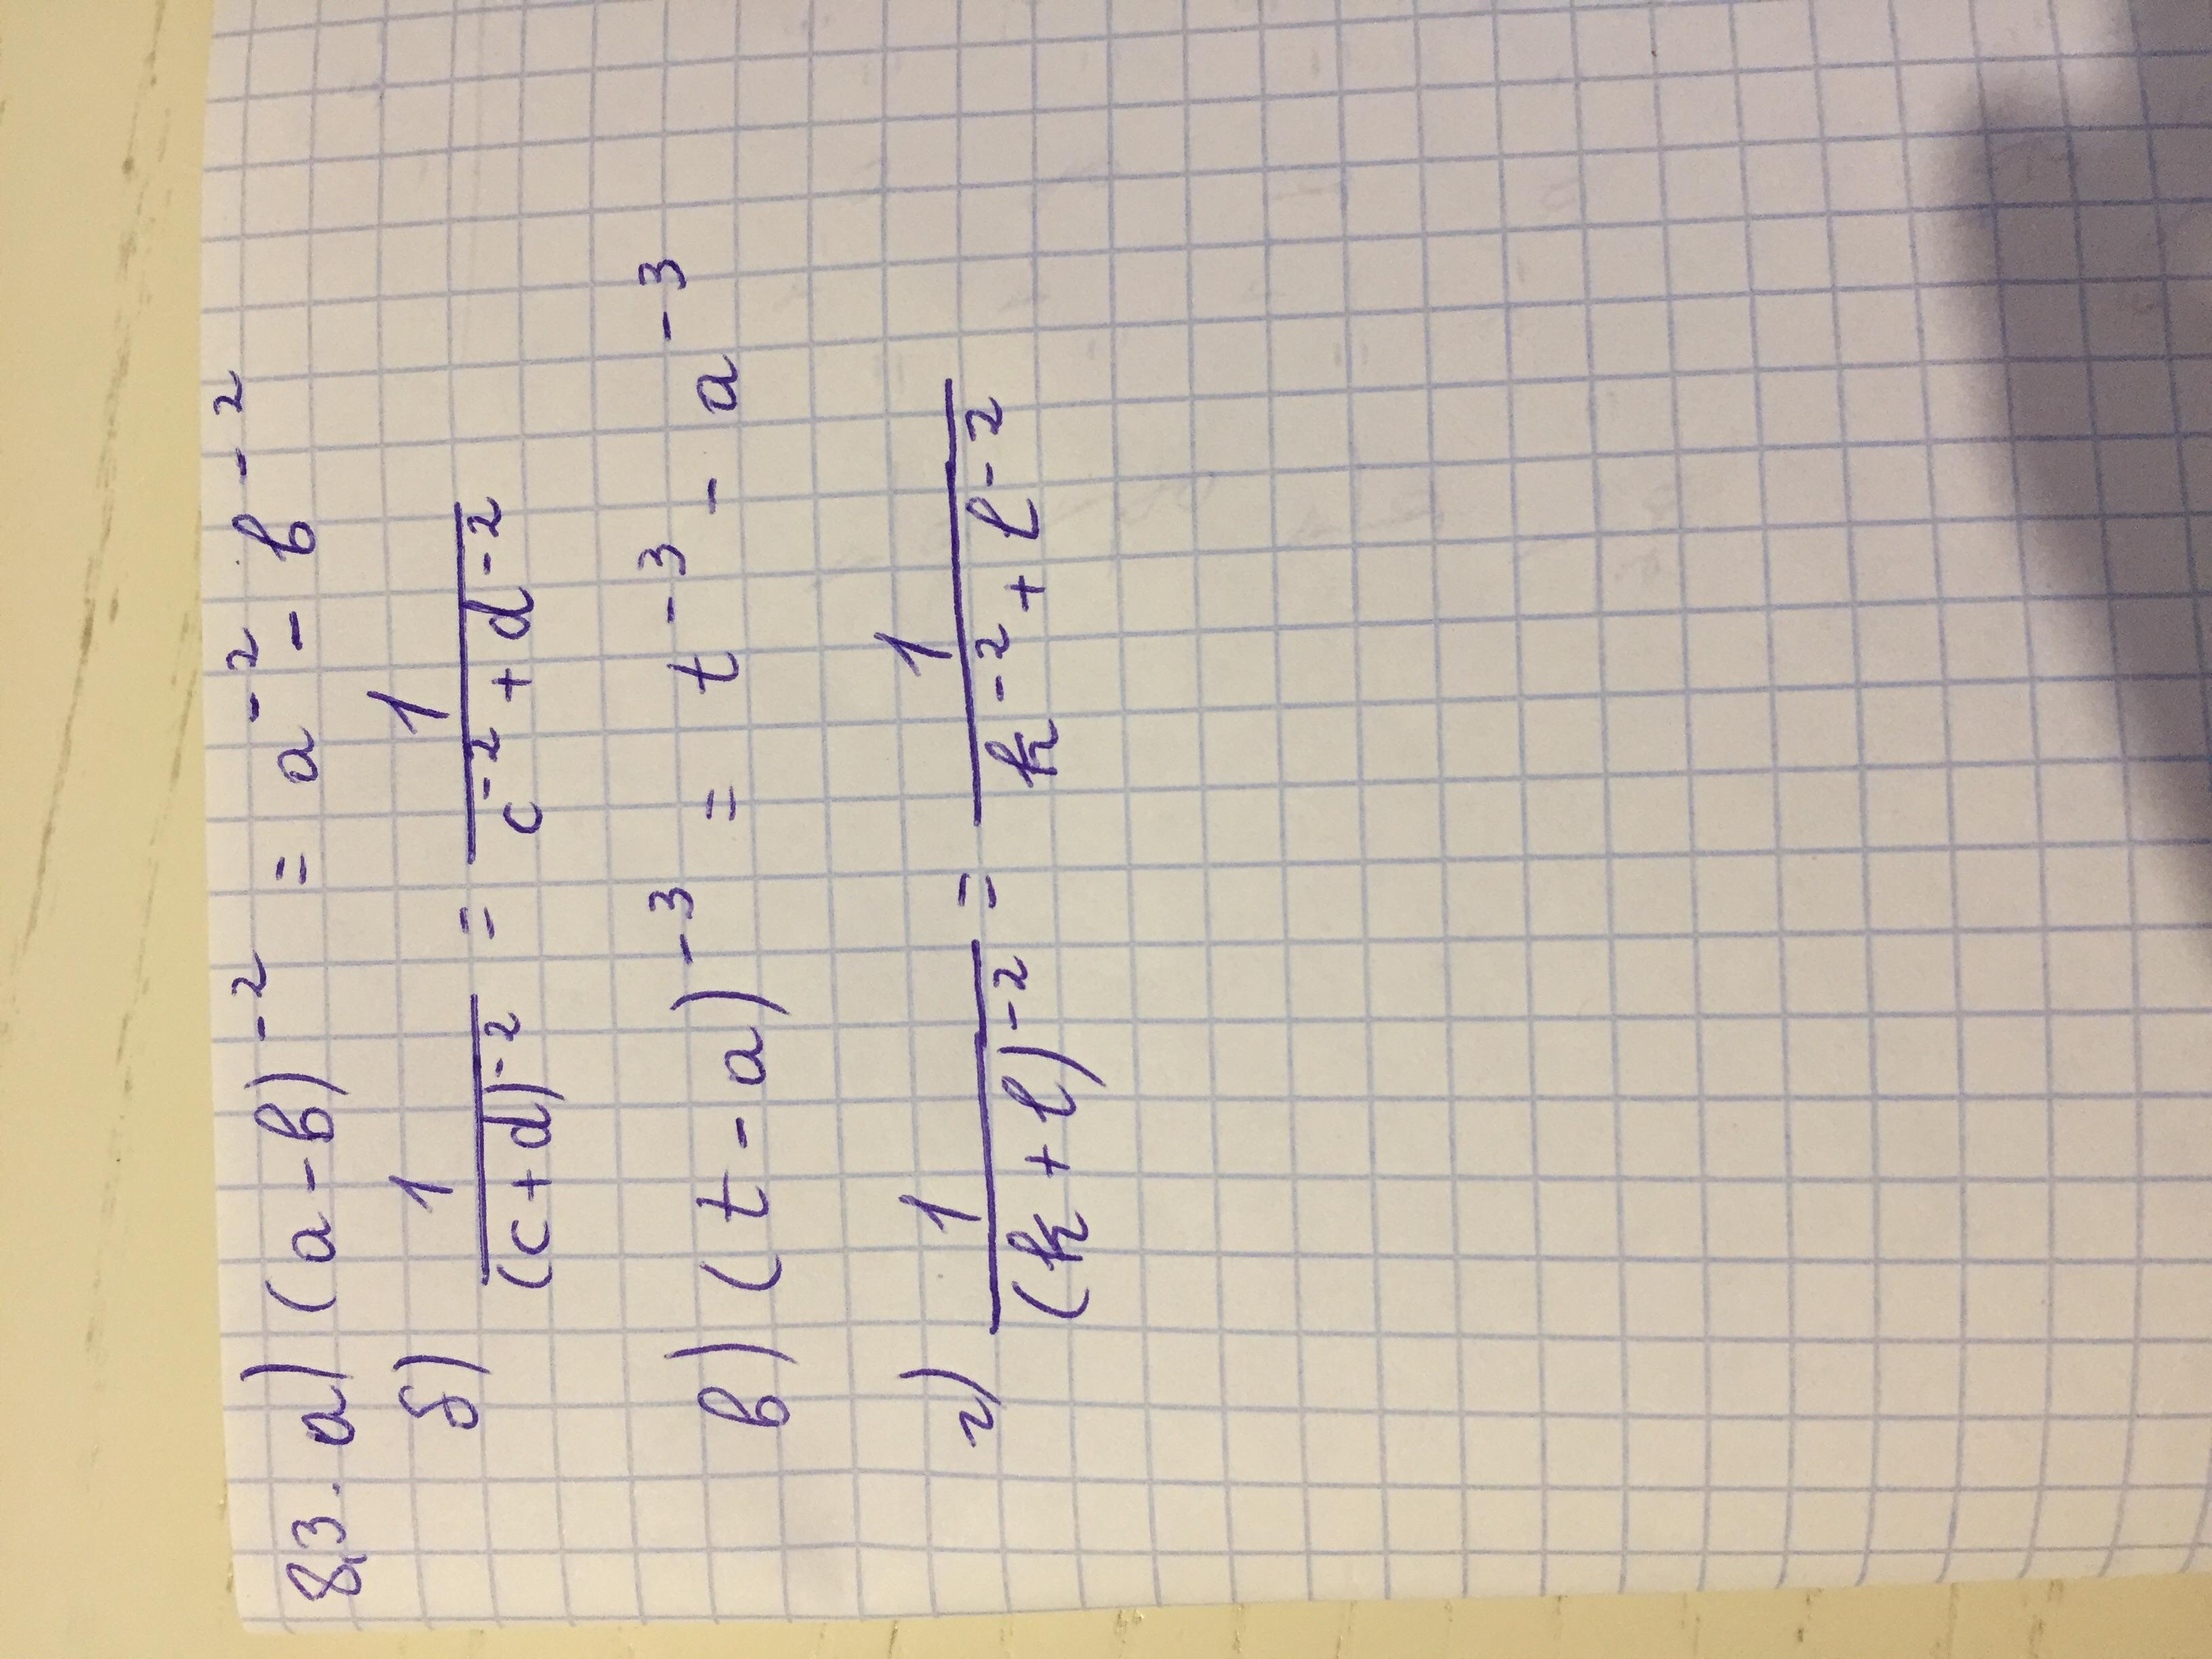 8.3. а) (a-b)⁻² = a⁻² - b⁻²
б) 1/(c+d)⁻² = 1/(c⁻²+d⁻²)
в) (t-a)⁻³ = t⁻³ - a⁻³
г) 1/(k+l)⁻² = 1/(k⁻²+l⁻²)